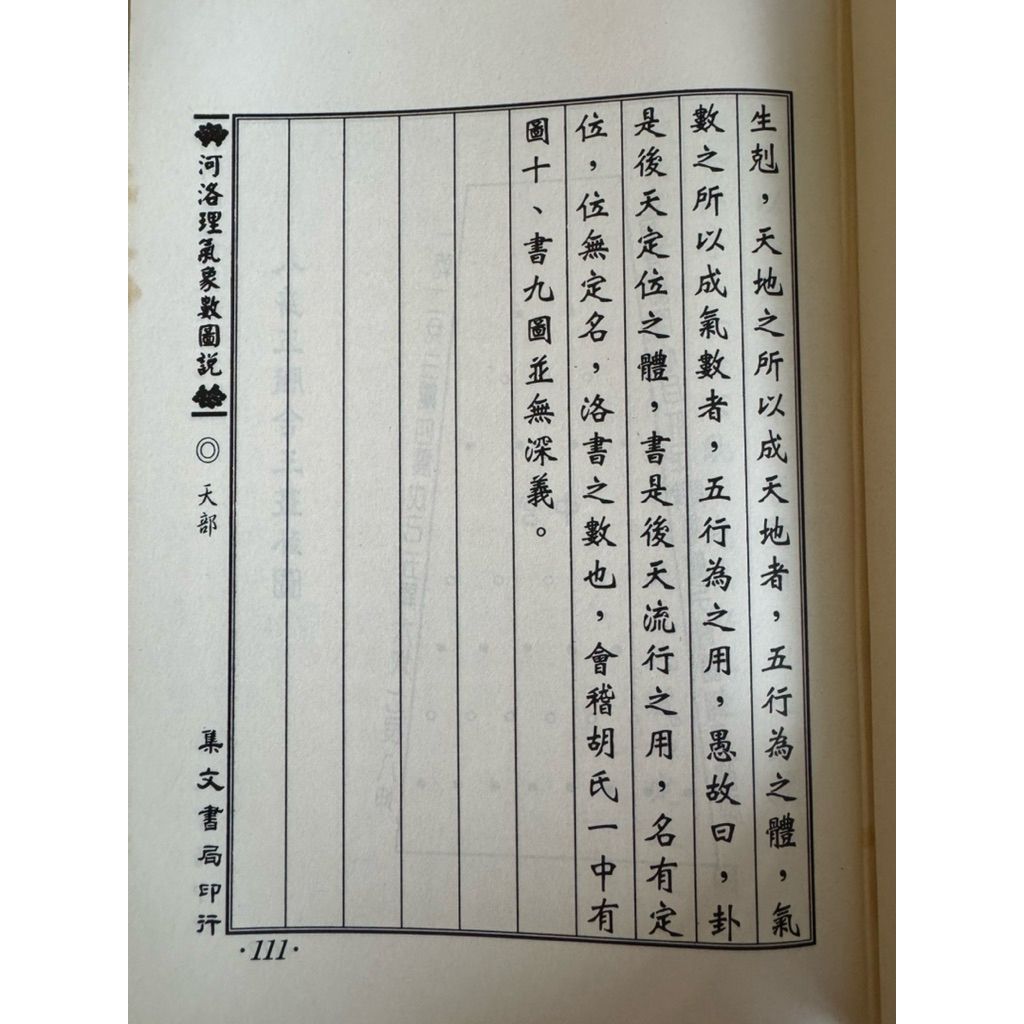 生剋，天地之所以成天地者，五行為之體，氣
數之所以成氣數者，五行為之用，愚故曰，卦
是後天定位之體，書是後天流行之用，名有定
位，位無定名，洛書之數也，會稽胡氏一中有
圖十、書九圖並無深義。
河洛理氣象數圖説
◎天部
集文書局印行
·111·